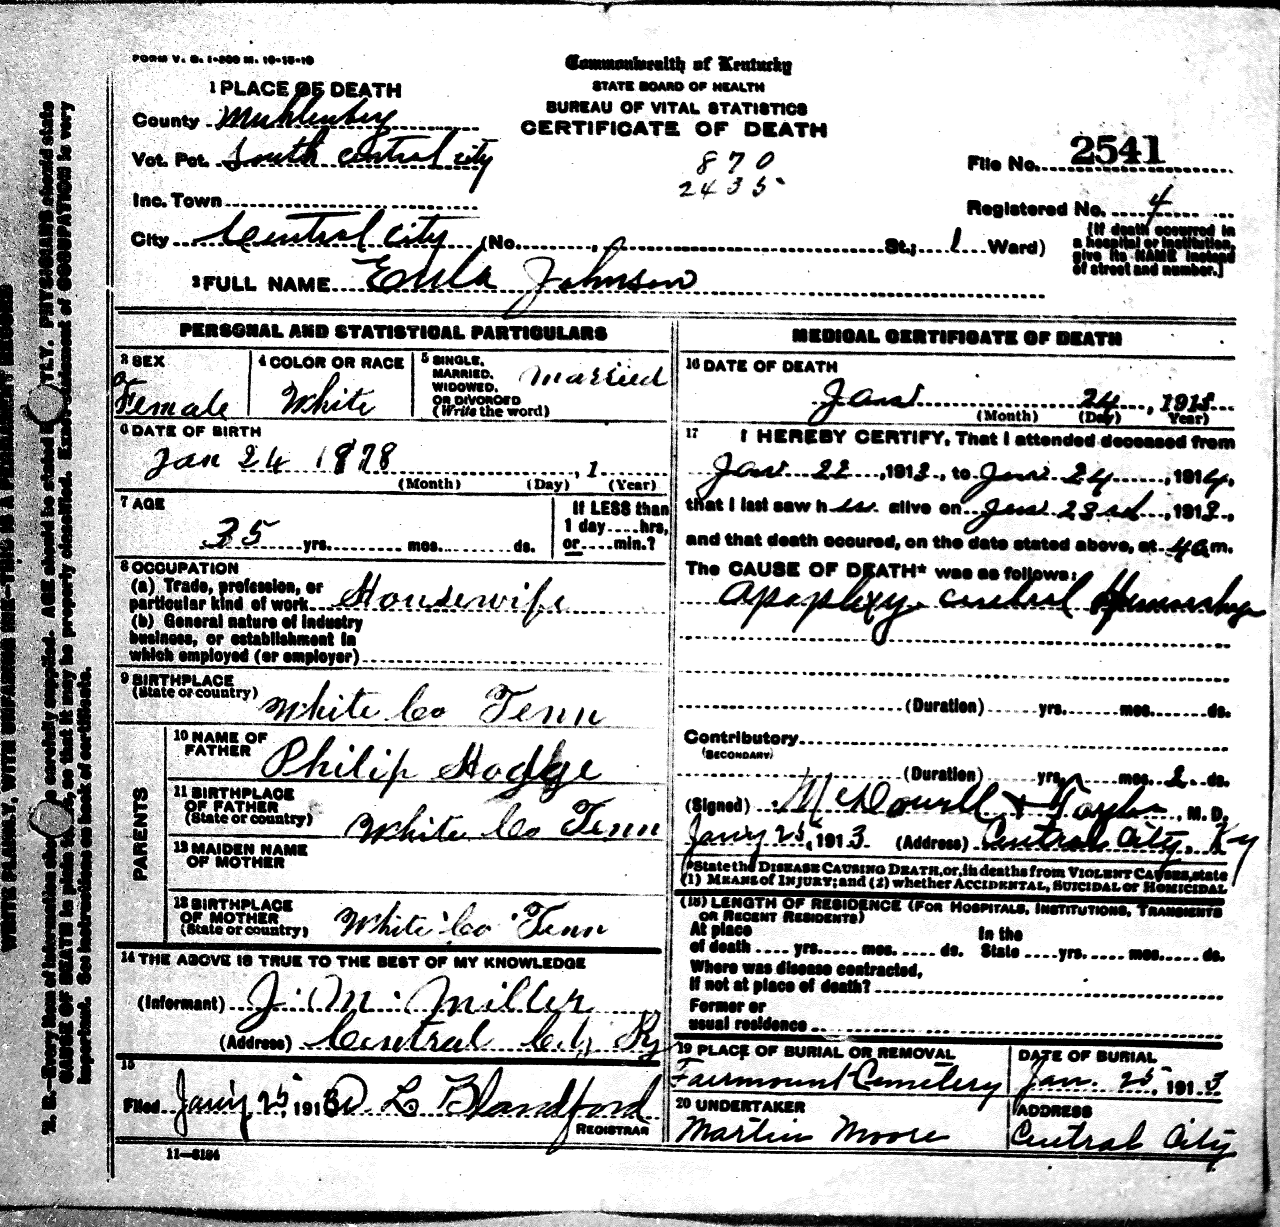 FORM V. S. 1-200 M. 10-15-10
Commonwealth of Kentucky
STATE BOARD OF HEALTH
BUREAU OF VITAL STATISTICS
CERTIFICATE OF DEATH
870
2435
File No. 2541
Registered No. 4
[If death occurred in
a hospital or institution,
give its NAME instead
of street and number.]
1 PLACE OF DEATH
County Muhlenberg
Vot. Pct. South Central City
Inc. Town
City Central City (No. St.; 1 Ward)
2 FULL NAME Eula Johnson
PERSONAL AND STATISTICAL PARTICULARS
3 SEX
Female
4 COLOR OR RACE
White
5 SINGLE, MARRIED, WIDOWED, OR DIVORCED (Write the word)
Married
6 DATE OF BIRTH
Jan 24 1878, 1
(Month) (Day) (Year)
7 AGE
35 yrs. mos. ds.
If LESS than
1 day hrs,
or min.?
8 OCCUPATION
(a) Trade, profession, or
particular kind of work Housewife
(b) General nature of industry
business, or establishment in
which employed (or employer)
9 BIRTHPLACE
(State or country) White Co Tenn
PARENTS
10 NAME OF FATHER Philip Hodge
11 BIRTHPLACE OF FATHER (State or country) White Co Tenn
12 MAIDEN NAME OF MOTHER
13 BIRTHPLACE OF MOTHER (State or country) White Co Tenn
14 THE ABOVE IS TRUE TO THE BEST OF MY KNOWLEDGE
(Informant) J. M. Miller
(Address) Central City Ky
15
Filed Jany 25, 1913 D L Blandford
REGISTRAR
11—6184
MEDICAL CERTIFICATE OF DEATH
16 DATE OF DEATH
Jan 24, 1913
(Month) (Day) Year)
17 I HEREBY CERTIFY, That I attended deceased from
Jan 22, 1913, to Jan 24, 1914,
that I last saw her alive on Jan 23rd, 1913,
and that death occured, on the date stated above, at 4a m.
The CAUSE OF DEATH* was as follows:
Apoplexy cerebral Hemorrhage
(Duration) yrs. mos. ds.
Contributory
(SECONDARY)
(Duration) yrs. mos. 2 ds.
(Signed) McDowell & Taylor, M. D.
Jany 25, 1913 (Address) Central City, Ky
*State the DISEASE CAUSING DEATH, or, in deaths from VIOLENT CAUSES, state
(1) MEANS of INJURY; and (2) whether ACCIDENTAL, SUICIDAL or HOMICIDAL
(18) LENGTH OF RESIDENCE (FOR HOSPITALS, INSTITUTIONS, TRANSIENTS
OR RECENT RESIDENTS)
At place of death yrs. mos. ds. In the State yrs. mos. ds.
Where was disease contracted,
If not at place of death?
Former or
usual residence
19 PLACE OF BURIAL OR REMOVAL
Fairmount Cemetery
DATE OF BURIAL
Jan. 25, 1913
20 UNDERTAKER
Martin Moore
ADDRESS
Central City
WRITE PLAINLY, WITH UNFADING INK—THIS IS A PERMANENT RECORD
N. B.—Every item of information should be carefully supplied. AGE should be stated EXACTLY. PHYSICIANS should state
CAUSE OF DEATH in plain terms, so that it may be properly classified. Exact statement of OCCUPATION is very
important. See instructions on back of certificate.